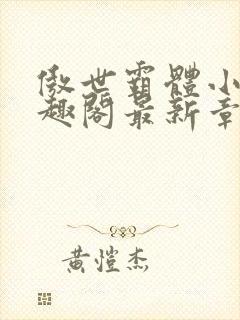 傲世霸體小
趣閣最新章
黄愷杰